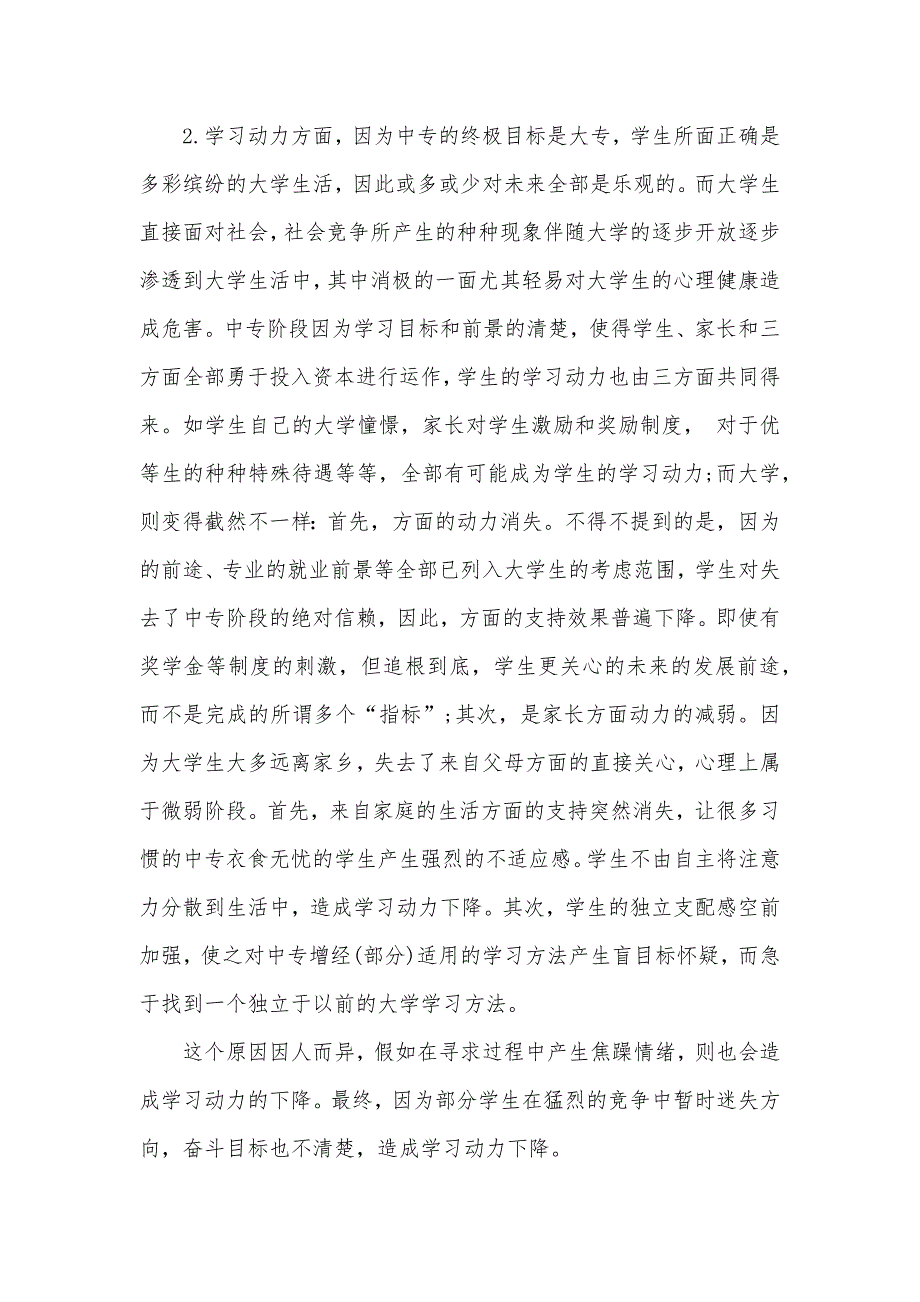 2.学习动力方面，因为中专的终极目标是大专，学生所面正确是
多彩缤纷的大学生活，因此或多或少对未来全部是乐观的。而大学生
直接面对社会，社会竞争所产生的种种现象伴随大学的逐步开放逐步
渗透到大学生活中，其中消极的一面尤其轻易对大学生的心理健康造
成危害。中专阶段因为学习目标和前景的清楚，使得学生、家长和三
方面全部勇于投入资本进行运作，学生的学习动力也由三方面共同得
来。如学生自己的大学憧憬，家长对学生激励和奖励制度， 对于优
等生的种种特殊待遇等等，全部有可能成为学生的学习动力;而大学，
则变得截然不一样：首先，方面的动力消失。不得不提到的是，因为
的前途、专业的就业前景等全部已列入大学生的考虑范围，学生对失
去了中专阶段的绝对信赖，因此，方面的支持效果普遍下降。即使有
奖学金等制度的刺激，但追根到底，学生更关心的未来的发展前途，
而不是完成的所谓多个“指标”;其次，是家长方面动力的减弱。因
为大学生大多远离家乡，失去了来自父母方面的直接关心，心理上属
于微弱阶段。首先，来自家庭的生活方面的支持突然消失，让很多习
惯的中专衣食无忧的学生产生强烈的不适应感。学生不由自主将注意
力分散到生活中，造成学习动力下降。其次，学生的独立支配感空前
加强，使之对中专增经(部分)适用的学习方法产生盲目标怀疑，而急
于找到一个独立于以前的大学学习方法。
这个原因因人而异，假如在寻求过程中产生焦躁情绪，则也会造
成学习动力的下降。最终，因为部分学生在猛烈的竞争中暂时迷失方
向，奋斗目标也不清楚，造成学习动力下降。